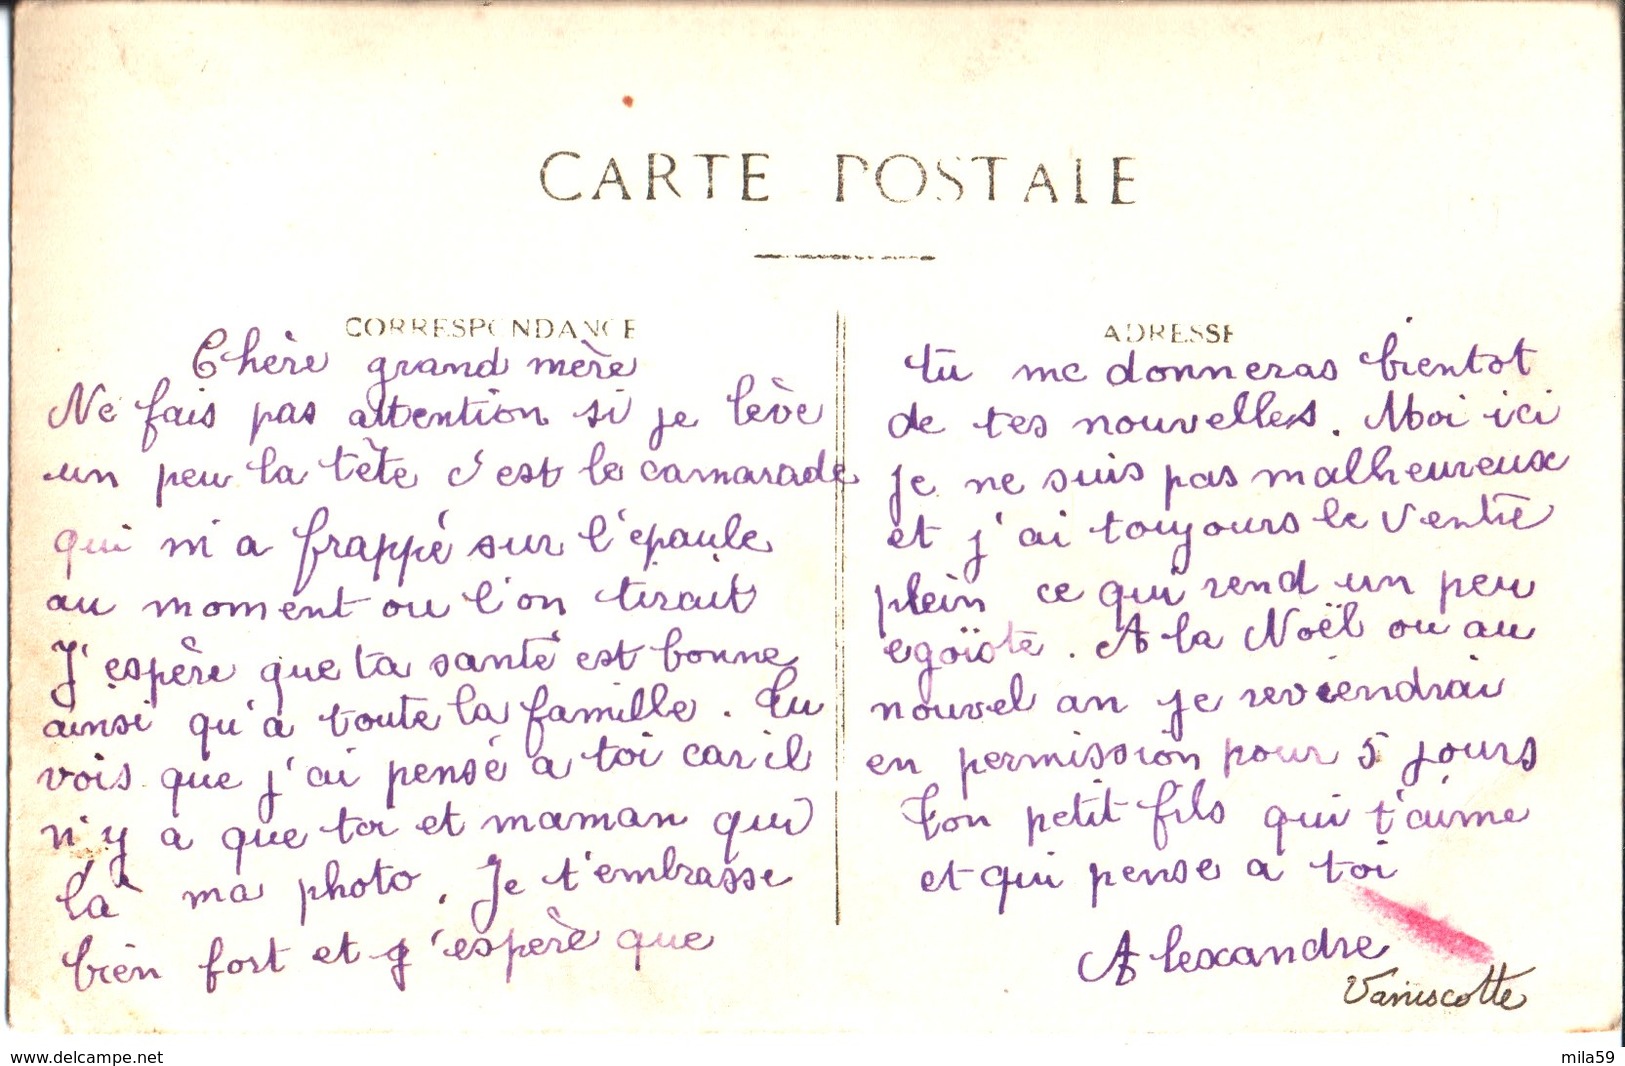 CARTE POSTALE
CORRESPONDANCE
Chère grand mère
Ne fais pas attention si je lève
un peu la tète c'est le camarade
qui m'a frappé sur l'épaule
au moment ou l'on tirait
J'espère que ta santé est bonne
ainsi qu'a toute la famille. Tu
vois que j'ai pensé a toi car il
n'y a que toi et maman qui
la ma photo. Je t'embrasse
bien fort et j'espère que
ADRESSE
tu me donneras bientot
de tes nouvelles. Moi ici
je ne suis pas malheureux
et j'ai toujours le ventre
plein ce qui rend un peu
egoïste. A la Noël ou au
nouvel an je reviendrai
en permission pour 5 jours
Ton petit fils qui t'aime
et qui pense a toi
Alexandre
Vaniscotte
www.delcampe.net
mila59